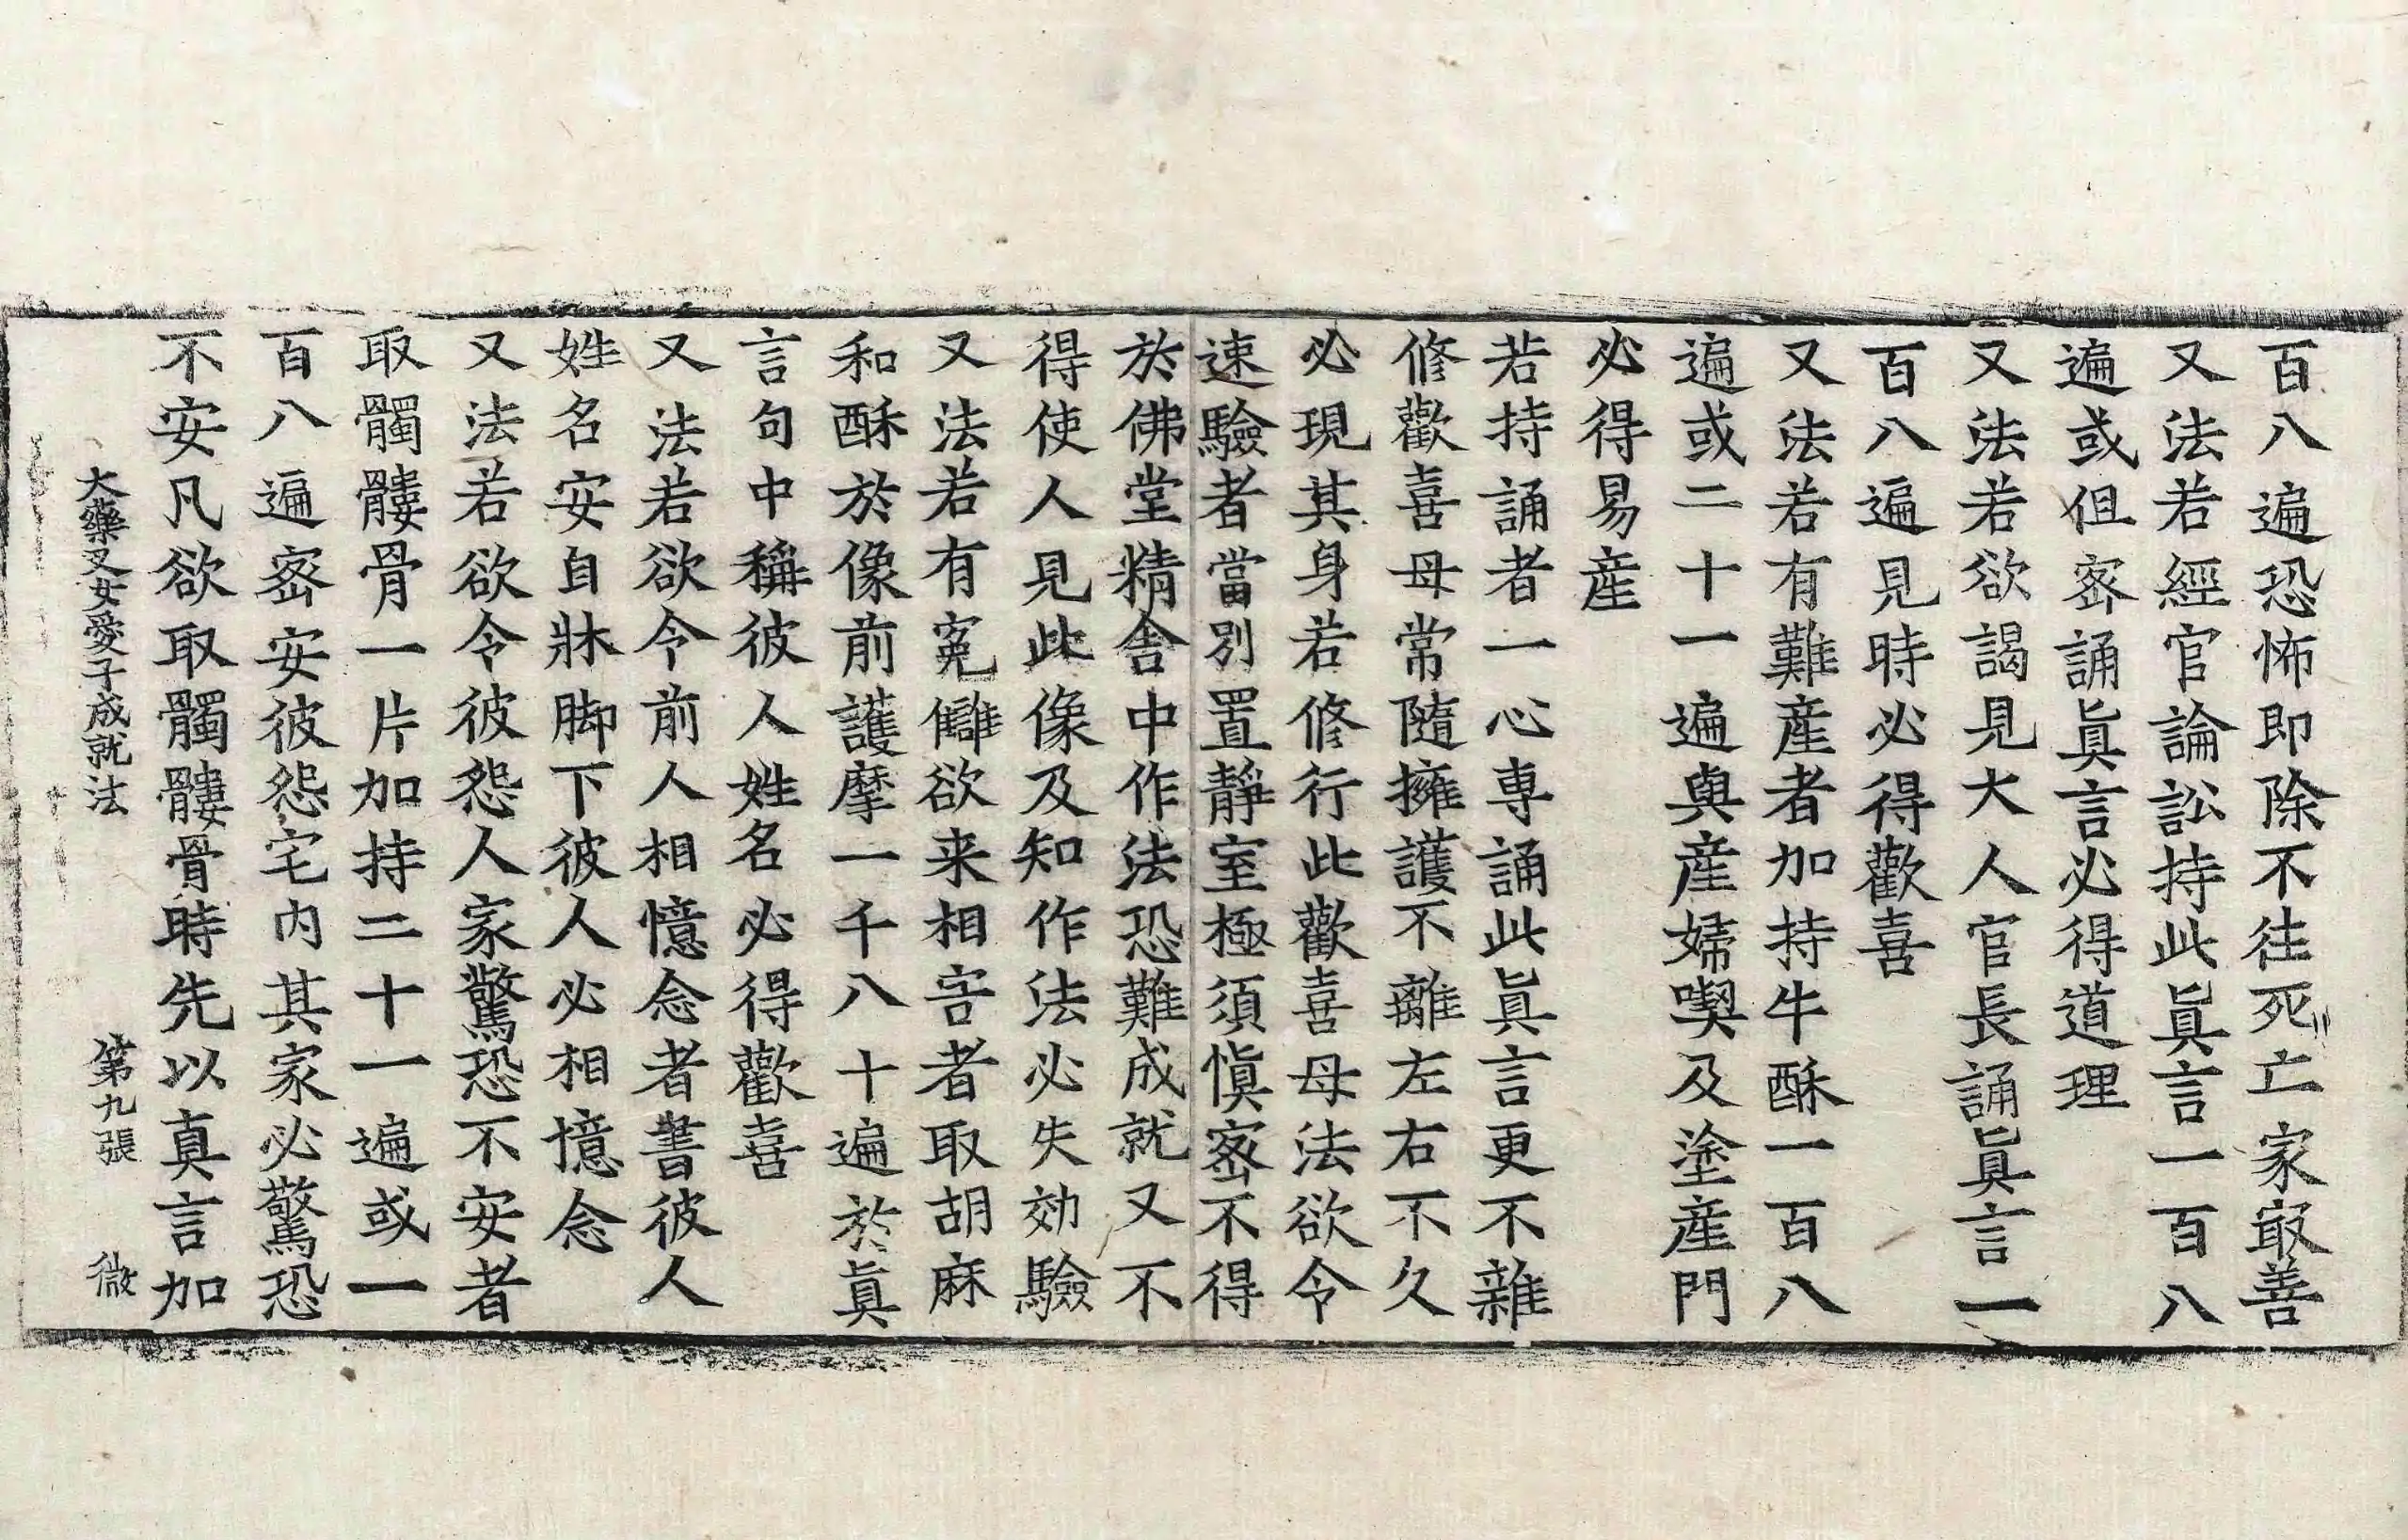 百八遍恐怖即除不往死亡家冣善
又法若經官論訟持此眞言一百八
遍或但宻誦眞言必得道理
又法若欲謁見大人官長誦眞言一
百八遍見時必得歡喜
又法若有難產者加持牛酥一百八
遍或二十一遍與產婦喫及塗產門
必得易產
若持誦者一心專誦此眞言更不雜
修歡喜母常隨擁護不離左右不久
必現其身若修行此歡喜母法欲令
速驗者當別置靜室極須慎宻不得
於佛堂精舍中作法恐難成就又不
得使人見此像及知作法必失効驗
又法若有寃讎欲来相害者取胡麻
和酥於像前護摩一千八十遍於眞
言句中稱彼人姓名必得歡喜
又法若欲令前人相憶念者書彼人
姓名安自牀脚下彼人必相憶念
又法若欲令彼怨人家驚恐不安者
取髑髏骨一片加持二十一遍或一
百八遍宻安彼怨宅內其家必驚恐
不安凡欲取髑髏骨時先以真言加
大藥叉女愛子成就法 第九張 微